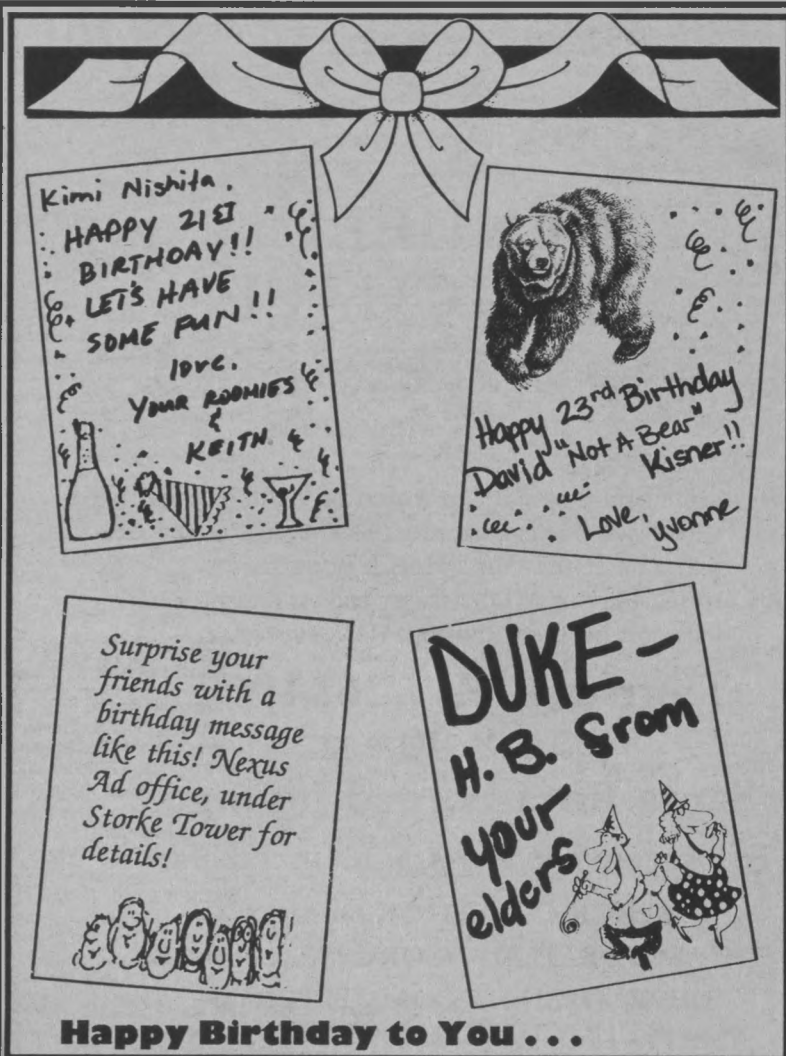 Kimi Nishita.
HAPPY 21ST
BIRTHDAY!!
LET'S HAVE
SOME FUN!!
love,
YOUR ROOMIES
&
KEITH
Happy 23rd Birthday
David "Not A Bear"
Kisner!!
Love,
Yvonne
Surprise your
friends with a
birthday message
like this! Nexus
Ad office, under
Storke Tower for
details!
DUKE—
H.B. from
your
elders
Happy Birthday to You . . .